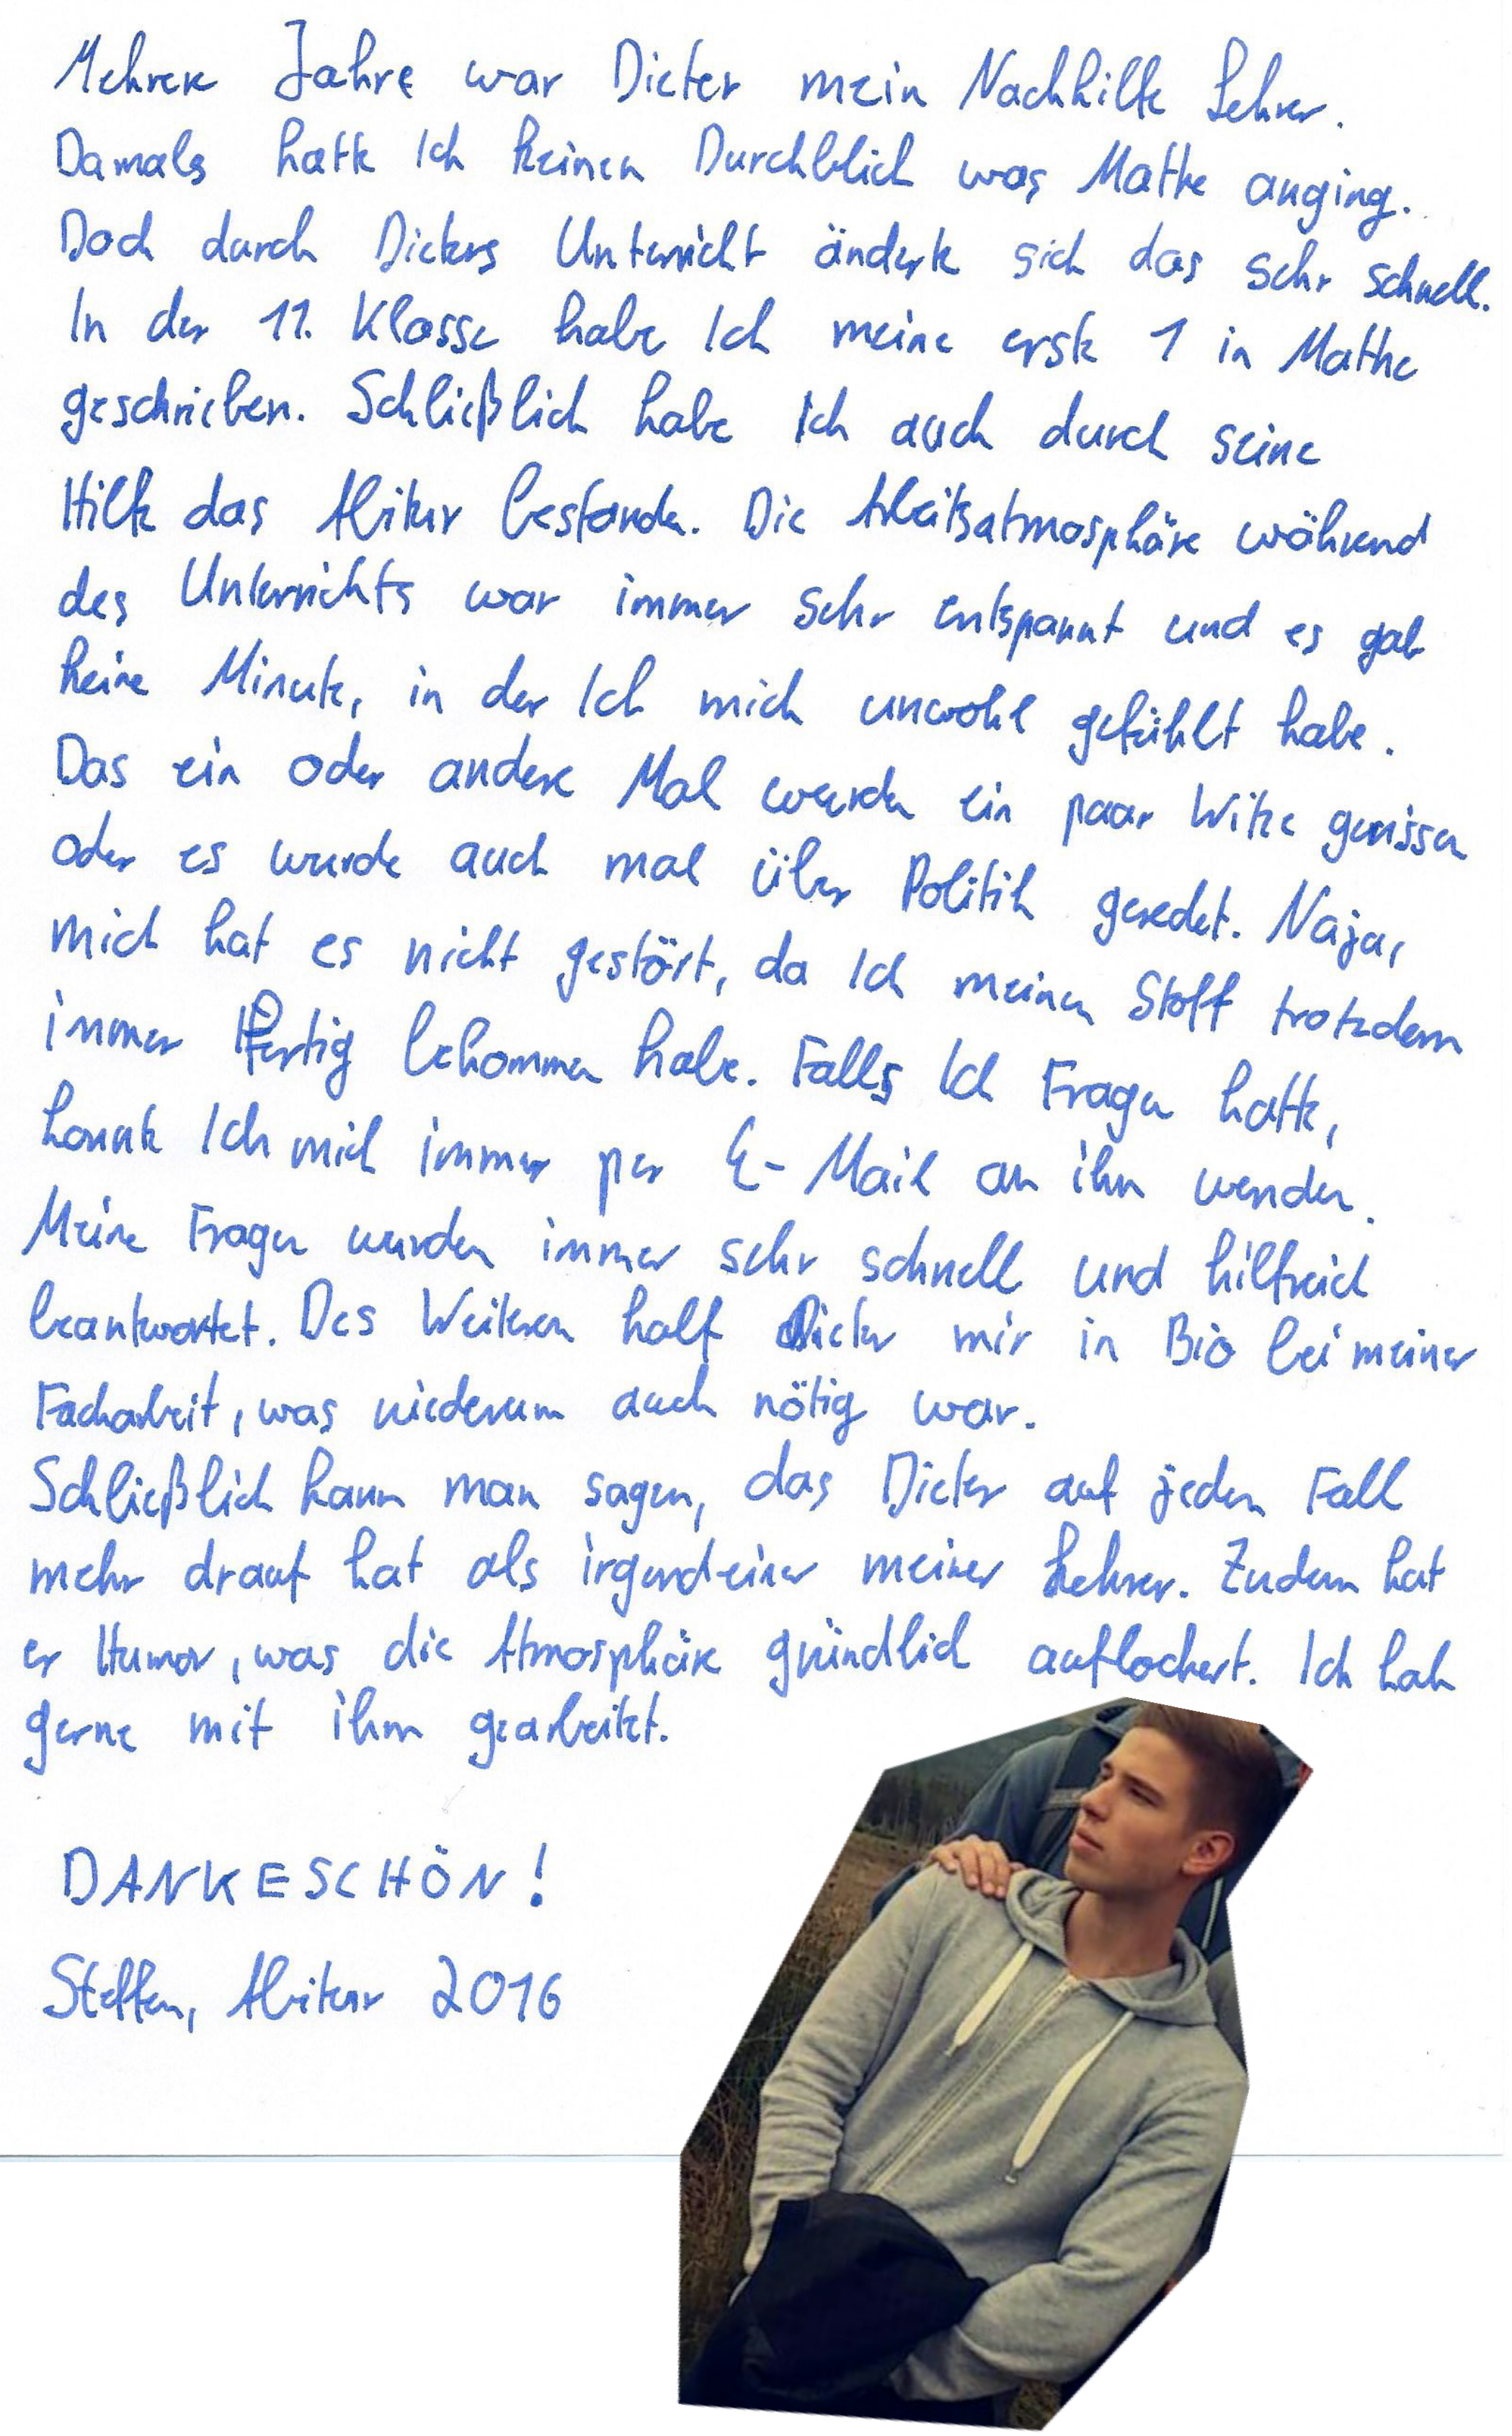 Mehrere Jahre war Dieter mein Nachhilfe Lehrer.
Damals hatte Ich keinen Durchblich was Mathe anging.
Doch durch Dieters Unterricht änderte sich das sehr schnell.
In der 11. Klasse habe Ich meine erste 1 in Mathe
geschrieben. Schließlich habe Ich auch durch seine
Hilfe das Abitur bestanden. Die Arbeitsatmosphäre während
des Unterrichts war immer sehr entspannt und es gab
keine Minute, in der Ich mich unwohl gefühlt habe.
Das ein oder andere Mal wurden ein paar Witze gerissen
oder es wurde auch mal über Politik geredet. Naja,
mich hat es nicht gestört, da Ich meinen Stoff trotzdem
immer fertig bekommen habe. Falls Ich Fragen hatte,
konnte Ich mich immer per E-Mail an ihn wenden.
Meine Fragen wurden immer sehr schnell und hilfreich
beantwortet. Des Weiteren half Dieter mir in Bio bei meiner
Facharbeit, was wiederum auch nötig war.
Schließlich kann man sagen, das Dieter auf jeden Fall
mehr drauf hat als irgendeiner meiner Lehrer. Zudem hat
er Humor, was die Atmosphäre gründlich auflockert. Ich hab
gerne mit ihm gearbeitet.
DANKESCHÖN!
Steffen, Abitur 2016